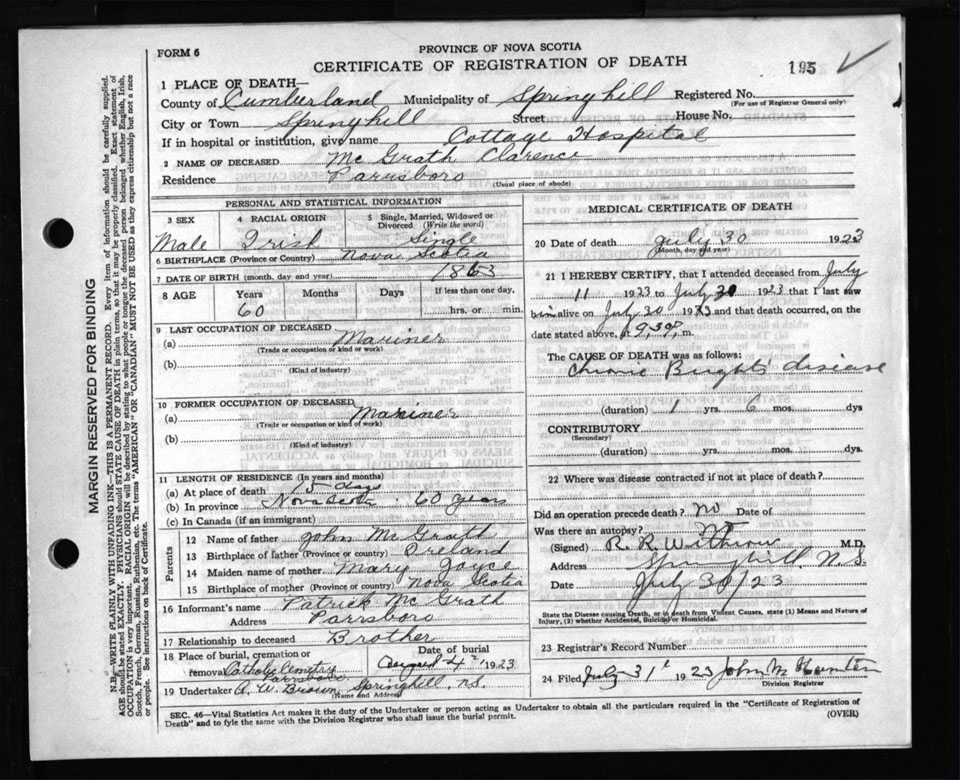 FORM 6
PROVINCE OF NOVA SCOTIA
CERTIFICATE OF REGISTRATION OF DEATH
195
1 PLACE OF DEATH—
County of Cumberland Municipality of Springhill Registered No.
(For use of Registrar General only)
City or Town Springhill Street House No.
If in hospital or institution, give name Cottage Hospital
2 NAME OF DECEASED Mc Grath Clarence
Residence Parrsboro (Usual place of abode)
PERSONAL AND STATISTICAL INFORMATION
3 SEX Male
4 RACIAL ORIGIN Irish
5 Single, Married, Widowed or Divorced (Write the word) Single
6 BIRTHPLACE (Province or Country) Nova Scotia
7 DATE OF BIRTH (month, day and year) 1863
8 AGE Years 60 Months Days If less than one day, hrs. or min.
9 LAST OCCUPATION OF DECEASED
(a) Mariner
(Trade or occupation or kind or work)
(b)
(Kind of industry)
10 FORMER OCCUPATION OF DECEASED
(a) Mariner
(Trade or occupation or kind or work)
(b)
(Kind of industry)
11 LENGTH OF RESIDENCE (In years and months)
(a) At place of death 5 days
(b) In province Nova Scotia 60 years
(c) In Canada (if an immigrant)
Parents
12 Name of father John Mc Grath
13 Birthplace of father (Province or country) Ireland
14 Maiden name of mother Mary Joyce
15 Birthplace of mother (Province or country) Nova Scotia
16 Informant's name Patrick Mc Grath
Address Parrsboro
17 Relationship to deceased Brother
18 Place of burial, cremation or removal Catholic Cemetery Parrsboro
Date of burial August 4th 1923
19 Undertaker A. W. Brown, Springhill, N.S.
(Name and Address)
MEDICAL CERTIFICATE OF DEATH
20 Date of death July 30 1923
(Month, day and year)
21 I HEREBY CERTIFY, that I attended deceased from July
11 1923 to July 30 1923 that I last saw
him alive on July 30 1923 and that death occurred, on the
date stated above, at 9.30 P, m.
The CAUSE OF DEATH was as follows:
Chronic Brights disease
(duration) 1 yrs. 6 mos. dys
CONTRIBUTORY
(Secondary)
(duration) yrs. mos. dys.
22 Where was disease contracted if not at place of death?
Did an operation precede death? No Date of
Was there an autopsy? No
(Signed) R. R. Withrow M.D.
Address Springhill. N.S.
Date July 30/23
State the Disease causing Death, or in death from Violent Causes, state (1) Means and Nature of Injury, (2) whether Accidental, Suicidal or Homicidal.
23 Registrar's Record Number
24 Filed July 31st 1923 John M Hunter
Division Registrar
SEC. 46—Vital Statistics Act makes it the duty of the Undertaker or person acting as Undertaker to obtain all the particulars required in the "Certificate of Registration of
Death" and to fyle the same with the Division Registrar who shall issue the burial permit.
(OVER)
MARGIN RESERVED FOR BINDING
N.B.—WRITE PLAINLY WITH UNFADING INK—THIS IS A PERMANENT RECORD. Every item of information should be carefully supplied.
AGE should be stated EXACTLY. PHYSICIANS should STATE CAUSE OF DEATH in plain terms, so that it may be properly classified. Exact statement of
OCCUPATION is very important. RACIAL ORIGIN will be described by stating to what people or tongue the deceased person belonged, whether English, Irish,
Scotch, French, German, Russian, Ruthenian, etc. The terms "AMERICAN" OR "CANADIAN" MUST NOT BE USED as they express citizenship but not a race
or people. See instructions on back of Certificate.